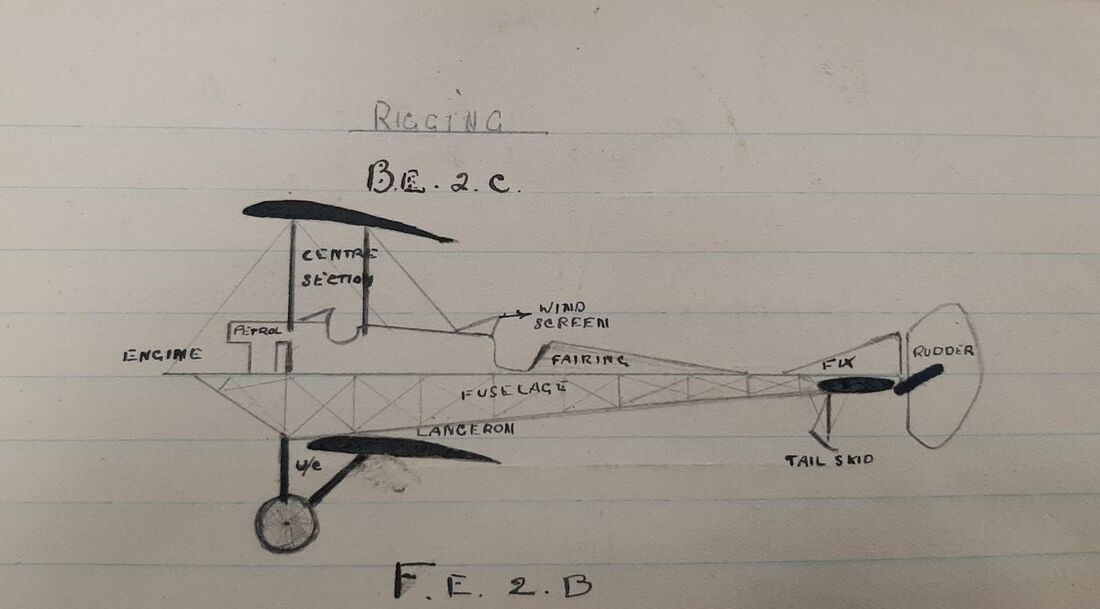 RIGGING
B.E. 2.C.
CENTRE
SECTION
WIND
SCREEN
PETROL
ENGINE
FAIRING
FIX
RUDDER
FUSELAGE
LANGERON
U/C
TAIL SKID
F.E. 2.B